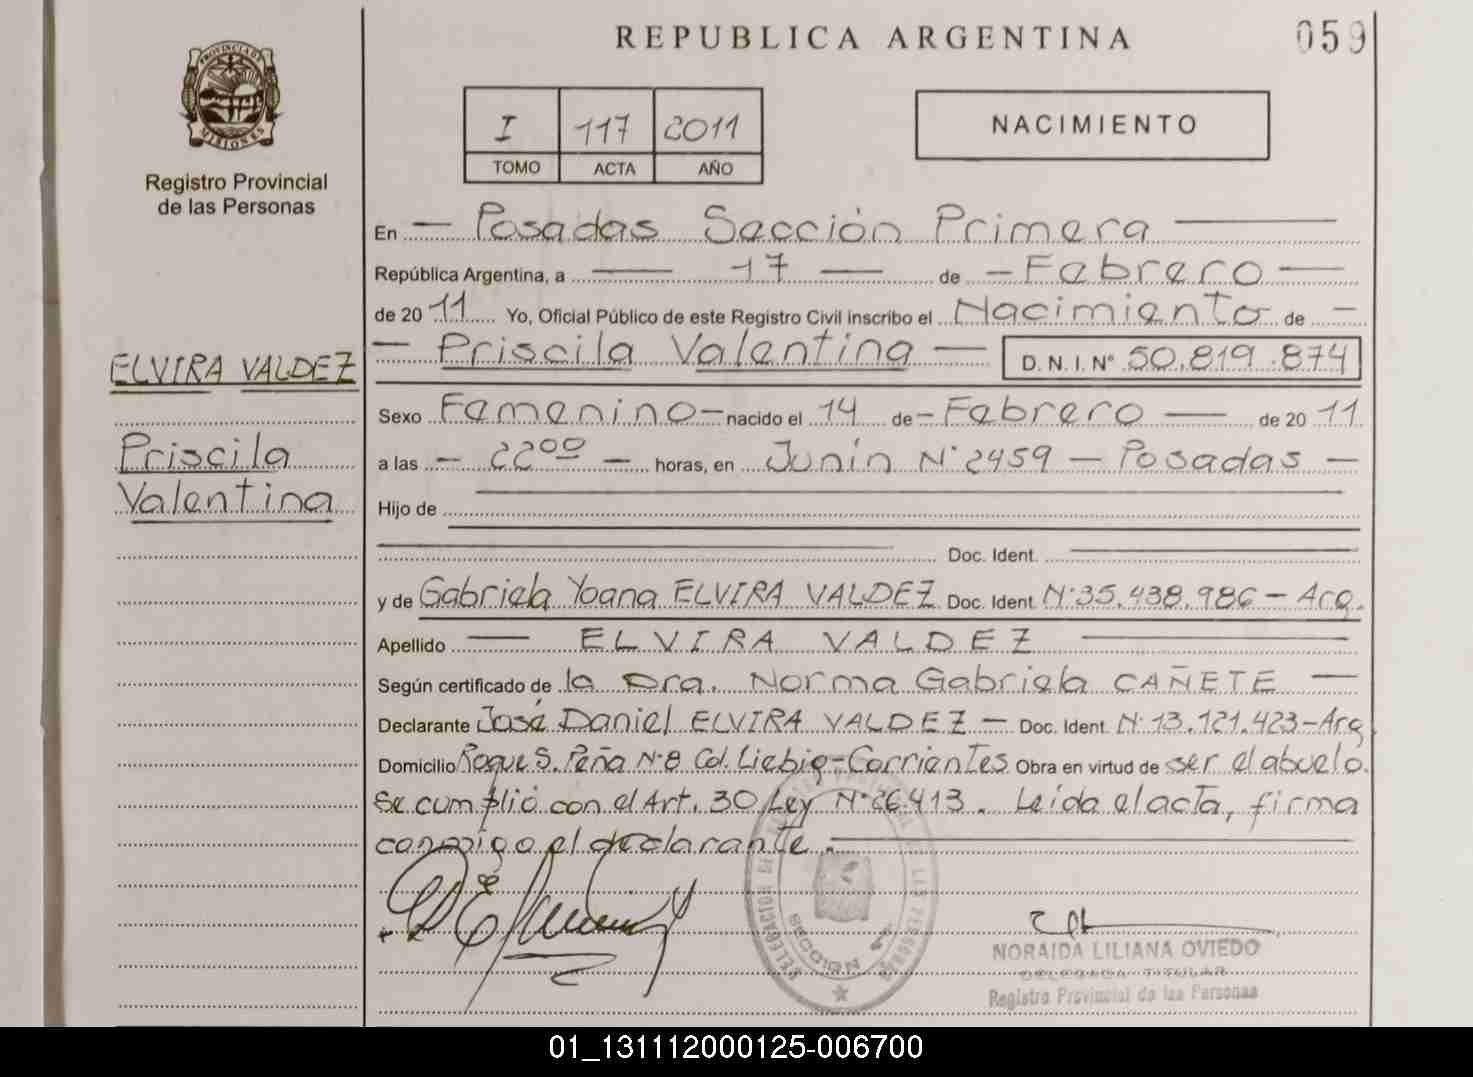 REPUBLICA ARGENTINA
059
PROVINCIA DE
MISIONES
Registro Provincial
de las Personas
I 117 2011
TOMO ACTA AÑO
NACIMIENTO
En — Posadas Sección Primera —
República Argentina, a — 17 — de — Febrero —
de 2011 Yo, Oficial Público de este Registro Civil inscribo el Nacimiento de —
— Priscila Valentina — D. N. I. N° 50.819.874
ELVIRA VALDEZ
Priscila
Valentina
Sexo Femenino — nacido el 14 de — Febrero — de 2011
a las — 22°° — horas, en Junín N° 2459 — Posadas —
Hijo de
Doc. Ident.
y de Gabriela Yoana ELVIRA VALDEZ Doc. Ident N° 35.438.986 — Arg.
Apellido — ELVIRA VALDEZ —
Según certificado de la Dra. Norma Gabriela CAÑETE —
Declarante José Daniel ELVIRA VALDEZ — Doc. Ident N° 13.121.423 — Arg
Domicilio Roque S. Peña N° 8 Col. Liebig — Corrientes Obra en virtud de ser el abuelo.
Se cumplió con el Art. 30 Ley N° 26.413. Leída el acta, firma
conmigo el declarante. —
DELEGACION
DE LAS PERSONAS
SECCION
NORAIDA LILIANA OVIEDO
DELEGADA TITULAR
Registro Provincial de las Personas
01_131112000125-006700